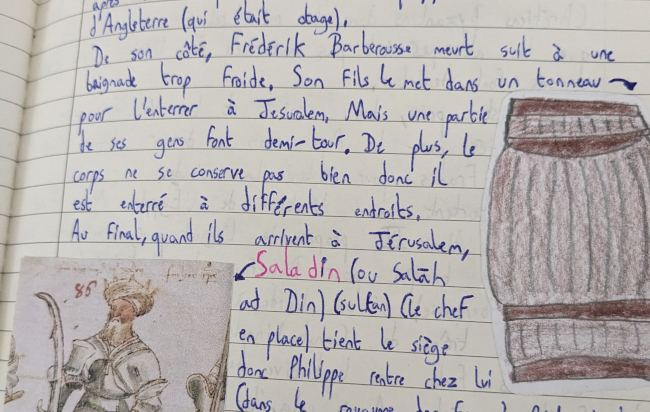 après
d'Angleterre (qui était otage).
De son côté, Frédérik Barberousse meurt suit à une
baignade trop froide. Son fils le met dans un tonneau
pour l'enterrer à Jesuralem. Mais une partie
de ses gens font demi-tour. De plus, le
corps ne se conserve pas bien donc il
est enterré à différents endroits.
Au final, quand ils arrivent à Jérusalem,
Saladin (ou Salāh
ad Din) (sultan) (le chef
en place) tient le siège
donc Philippe rentre chez lui
(dans le royaume des
85